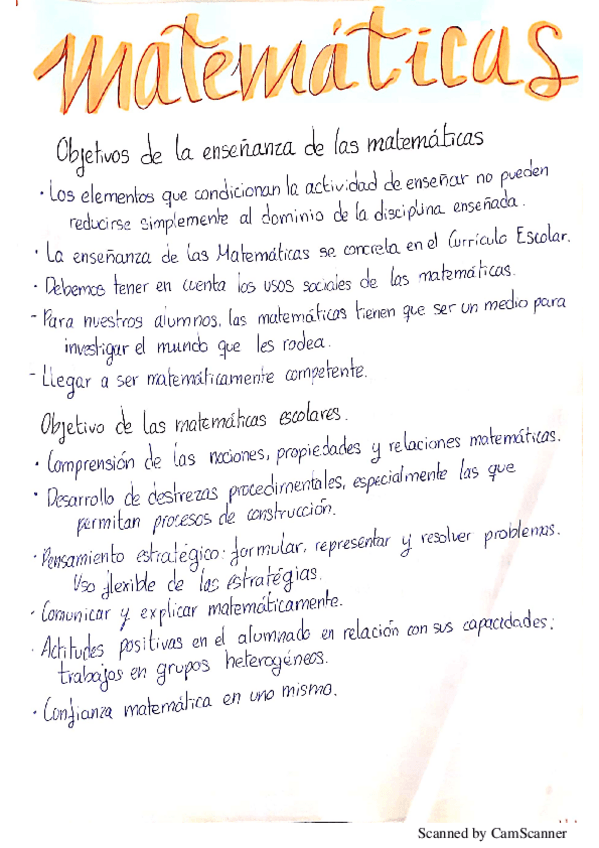 matemáticas
Objetivos de la enseñanza de las matemáticas
· Los elementos que condicionan la actividad de enseñar no pueden
reducirse simplemente al dominio de la disciplina enseñada.
· La enseñanza de las Matemáticas se concreta en el Currículo Escolar.
· Debemos tener en cuenta los usos sociales de las matemáticas.
- Para nuestros alumnos, las matemáticas tienen que ser un medio para
investigar el mundo que les rodea.
- Llegar a ser matemáticamente competente.
Objetivo de las matemáticas escolares.
· Comprensión de las nociones, propiedades y relaciones matemáticas.
· Desarrollo de destrezas procedimentales, especialmente las que
permitan procesos de construcción.
· Pensamiento estratégico: formular, representar y resolver problemas.
Uso flexible de las estratégias.
· Comunicar y explicar matemáticamente.
· Actitudes positivas en el alumnado en relación con sus capacidades;
trabajos en grupos heterogéneos.
· Confianza matemática en uno mismo.
Scanned by CamScanner